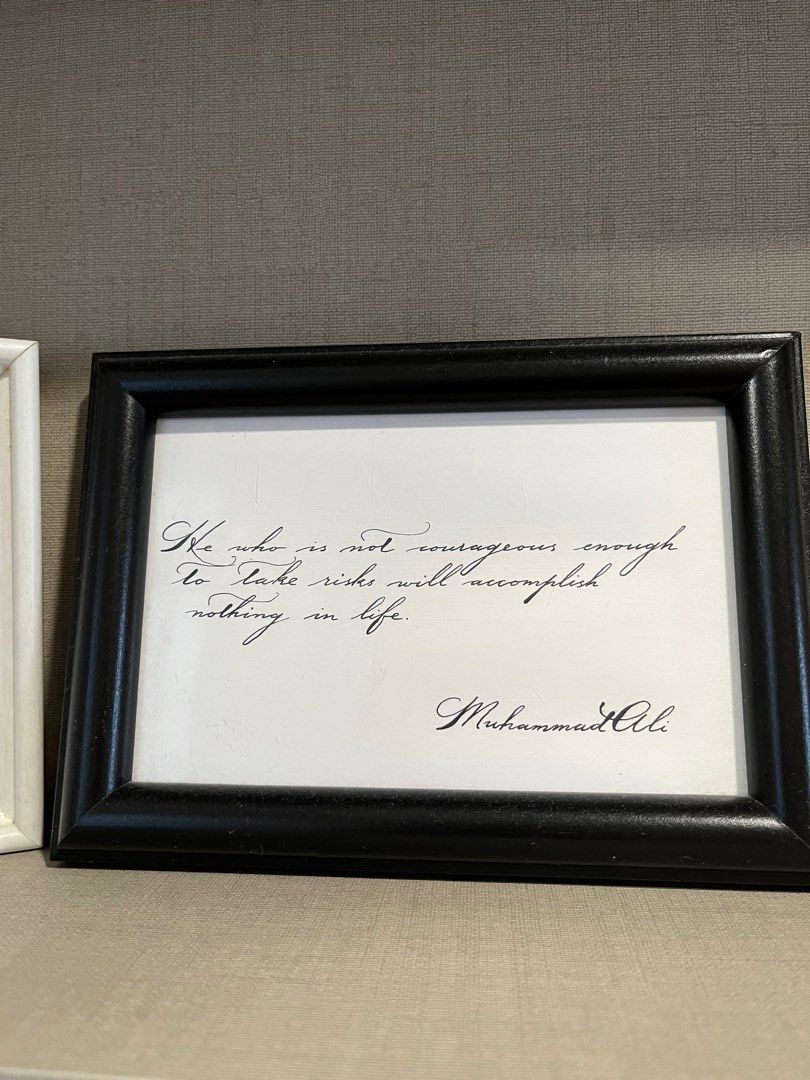 He who is not courageous enough
to take risks will accomplish
nothing in life.
Muhammad Ali